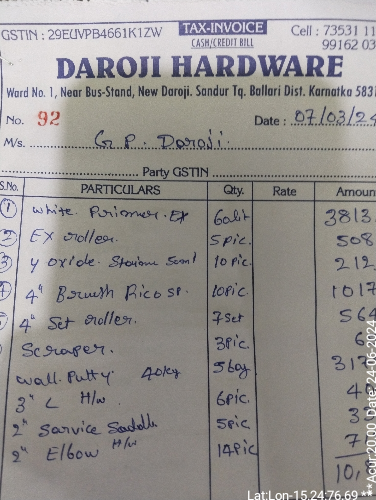 GSTIN : 29EUVPB4661K1ZW TAX-INVOICE Cell : 73531 11
CASH/CREDIT BILL 99162 03
DAROJI HARDWARE
Ward No. 1, Near Bus-Stand, New Daroji. Sandur Tq. Ballari Dist. Karnatka 5831
No. 92 Date : 07/03/24
M/s. G.P. Daroji.
Party GSTIN
S.No. PARTICULARS Qty. Rate Amoun
1 white Primer. Ex 60lit 3813
2 Ex roller. 5pic. 508
3 y oxide. 10pic. 212
4 4" Brush Rico sp. 10pic. 1017
5 4" Set roller. 7Set 564
Scraper. 3pic. 6
wall. Putty 40kg 5bag 317
3" L H/w 6pic. 4
2" Sarvice Saddle 5pic. 3
2" Elbow H/w 14Pic 7
10,
Lat:Lon-15.24:76.69 ***Acur:20.00 Date: 24-06-2024